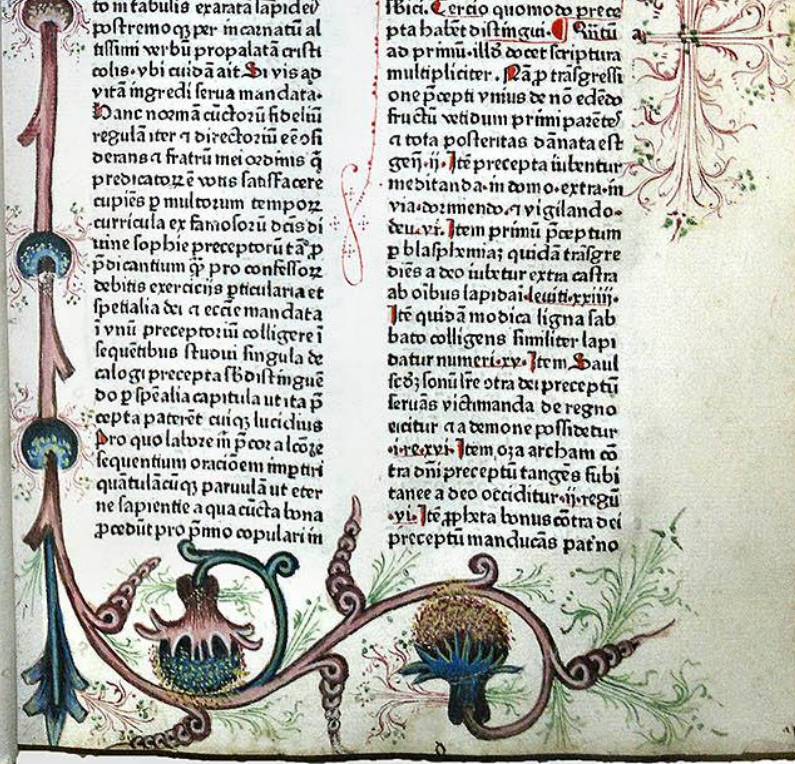 to in tabulis exarata lapideꝭ
postremoqꝫ per incarnatū al
tissimi verbū propalatā cristi
colis. vbi cuidā ait. Si vis ad
vitā ingredi serua mandata.
Hanc normā cūctorū fideliū
regulā iter ⁊ directoriū eē ↄsi
derans ⁊ fratrū mei ordinis q̄
predicatoꝝ ē votis satisfacere
cupiēs ꝑ multorum tempoꝝ
curricula ex famosorū dc̄is di
uine sophie preceptorū tā ꝓ
p̄dicantium qͣꝫ pro confessoꝝ
debitis exercicijs ꝑticularia et
spetialia dei ⁊ eccīe mandata
ī vnū preceptoriū colligere ī
sequētibus studui singula de
calogi precepta sb̄distinguē
do ꝑ spēalia capitula ut ita p̄
cepta paterēt cuiqꝫ lucidius
Pro quo labore īn p̄cor a lcōꝝe
sequentium oracōem imptiri
quātulācūqꝫ paruulā ut eter
ne sapientie a qua cūcta bona
ꝓcedūt pro p̄mo copulari in
sbici. Tercio quomodo prece
pta habēt distingui. ¶ Rn̄tū
ad primū. illd̄ docet scriptura
multipliciter. Nā ꝓ trāsgressi
one p̄cepti vnius de nō edēdo
fructū vetidum primi parēteꝭ
⁊ tota posteritas dānata est
geñ. ii. Itē precepta iubentur
meditanda. in domo. extra. in
via. dormiendo. ⁊ vigilando.
deu. vi. Item primū p̄ceptum
ꝑ blasphemiaꝫ quidā trāsgre
diēs a deo iubetur extra castra
ab oībus lapidai. leuiti. xxiiii.
Itē quidā modica ligna sab
bato colligens similiter lapi
datur numeri. xv. Item Saul
sc̄dꝫ sonū lr̄e ↄtra dei preceptū
seruās victimanda de regno
eicitur ⁊ a demone possidetur
.i. re. xvi. Item oza archam cō
tra dn̄i preceptū tangēs subi
tanee a deo occiditur. ii. regū
.vi. Itē ꝓpheta bonus cōtra dei
preceptū manducās par̄no